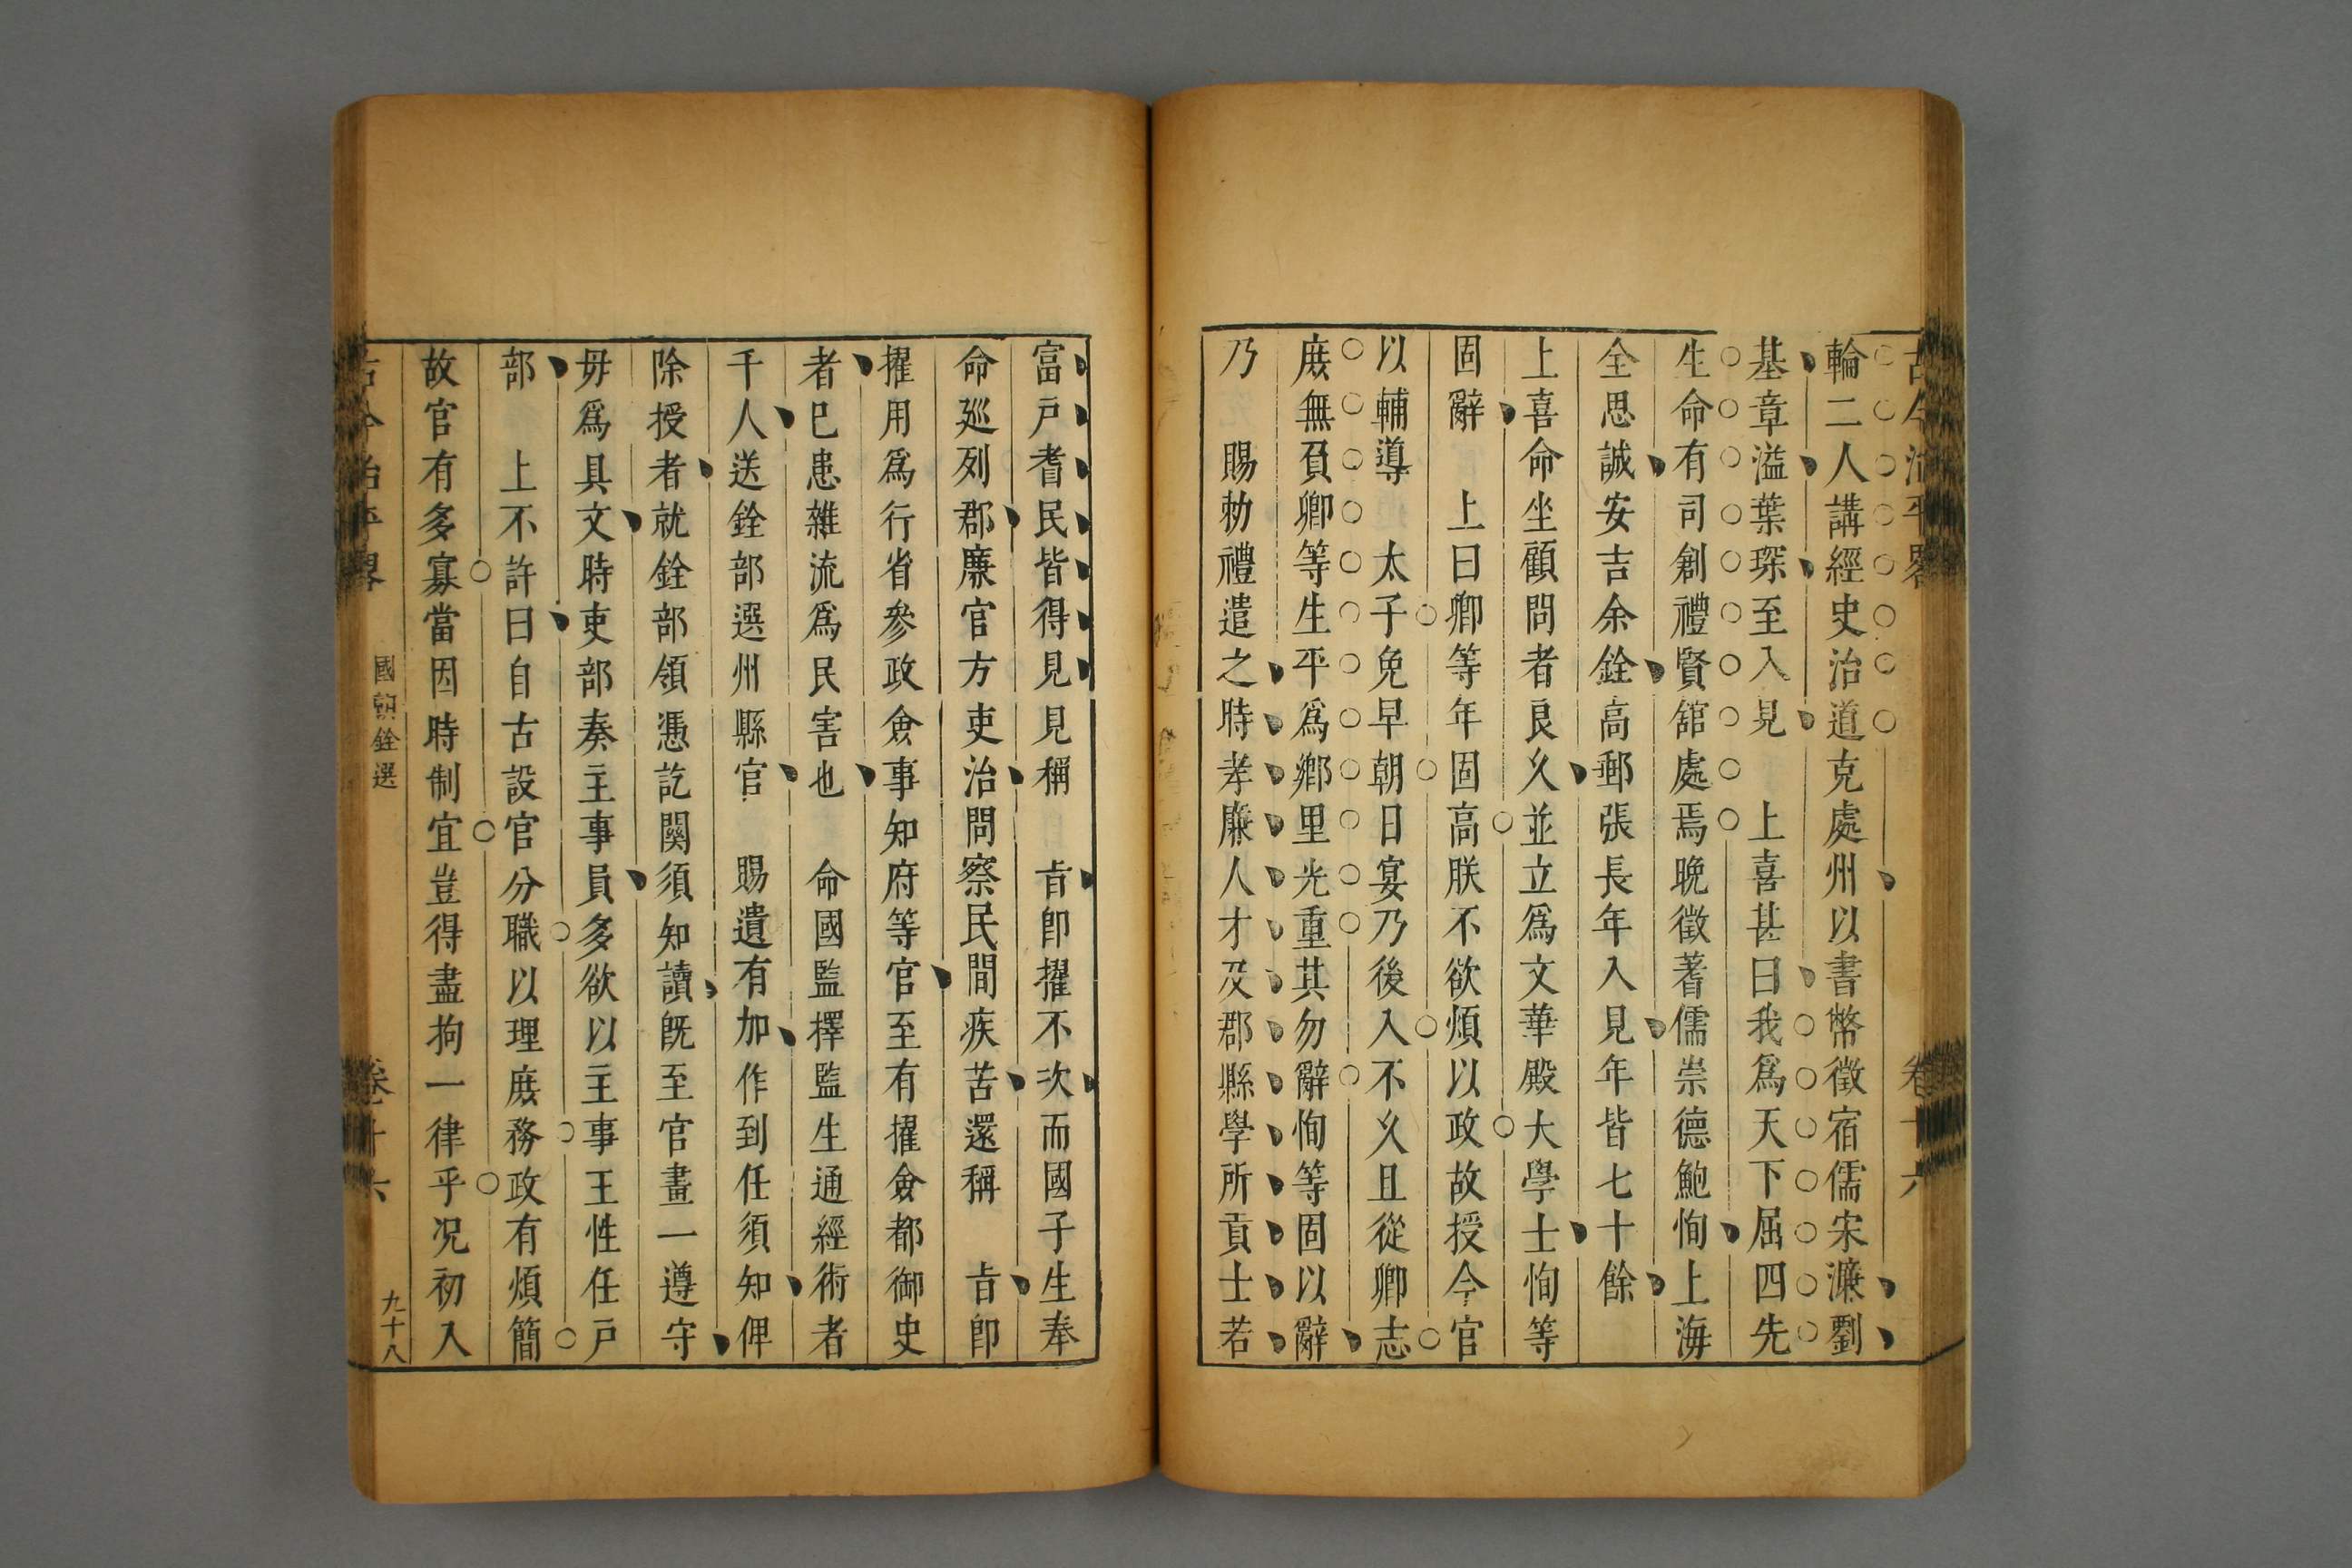 古今治平畧
卷十六
輪二人講經史治道克處州以書幣徵宿儒宋濂劉
基章溢葉琛至入見 上喜甚曰我爲天下屈四先
生命有司創禮賢舘處焉晚徵蓍儒崇德鮑恂上海
全思誠安吉余銓高郵張長年入見年皆七十餘
上喜命坐顧問者良乆並立爲文華殿大學士恂等
固辭 上曰卿等年固高朕不欲煩以政故授令官
以輔導 太子免早朝日宴乃後入不乆且從卿志
庻無負卿等生平爲鄉里光重其勿辭恂等固以辭
乃 賜勑禮遣之時孝廉人才及郡縣學所貢士若
富戸耆民皆得見見稱 㫖卽擢不次而國子生奉
命廵列郡廉官方吏治問察民間疾苦還稱 㫖卽
擢用爲行省參政僉事知府等官至有擢僉都御史
者已患雜流爲民害也 命國監擇監生通經術者
千人送銓部選州縣官 賜遺有加作到任須知俾
除授者就銓部領憑訖關須知讀旣至官畫一遵守
毋爲具文時吏部奏主事員多欲以主事王性任戸
部 上不許曰自古設官分職以理庻務政有煩簡
故官有多寡當因時制宜豈得盡拘一律乎况初入
古今治平畧
國朝銓選
卷十六
九十八